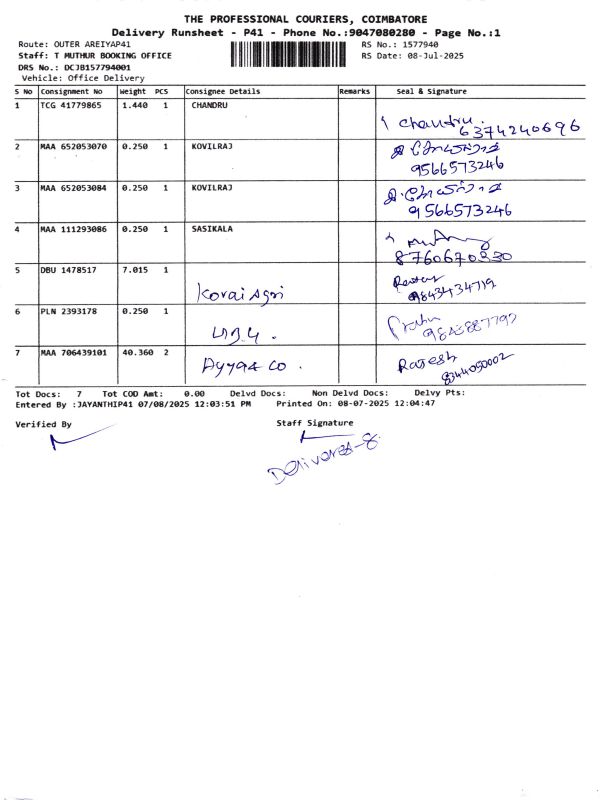 THE PROFESSIONAL COURIERS, COIMBATORE
Delivery Runsheet - P41 - Phone No.:9047080280 - Page No.:1
Route: OUTER AREIYAP41 RS No.: 1577940
Staff: T MUTHUR BOOKING OFFICE RS Date: 08-Jul-2025
DRS No.: DCJB157794001
Vehicle: Office Delivery
S No Consignment No Weight PCS Consignee Details Remarks Seal & Signature
1 TCG 41779865 1.440 1 CHANDRU Chandru.
6374240696
2 MAA 652053070 0.250 1 KOVILRAJ
9566573246
3 MAA 652053084 0.250 1 KOVILRAJ
9566573246
4 MAA 111293086 0.250 1 SASIKALA
8760670330
5 DBU 1478517 7.015 1 Kovai Agri
9843434719
6 PLN 2393178 0.250 1
7 MAA 706439101 40.360 2 Ayyaa Co. Rajesh
8344050002
Tot Docs: 7 Tot COD Amt: 0.00 Delvd Docs: Non Delvd Docs: Delvy Pts:
Entered By :JAYANTHIP41 07/08/2025 12:03:51 PM Printed On: 08-07-2025 12:04:47
Verified By Staff Signature